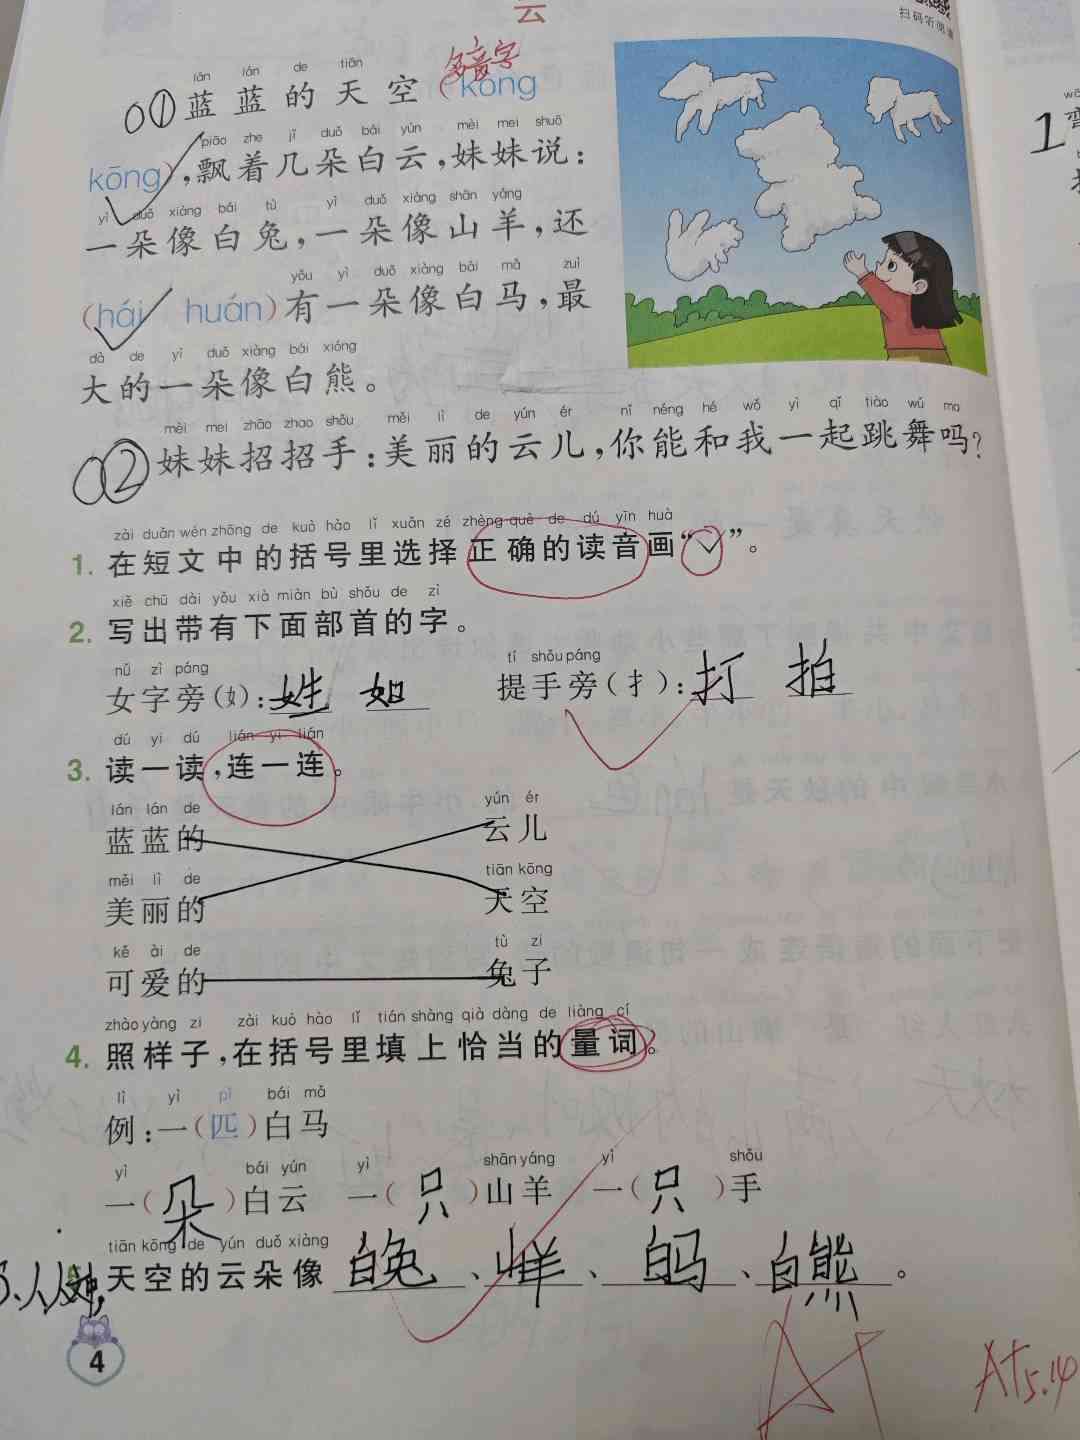 云
扫码听阅读
多音字
lán lán de tiān
01 蓝蓝的天空(kòng
piāo zhe jǐ duǒ bái yún mèi mei shuō
kōng),飘着几朵白云,妹妹说:
yì duǒ xiàng bái tù yì duǒ xiàng shān yáng
一朵像白兔,一朵像山羊,还
yǒu yì duǒ xiàng bái mǎ zuì
(hái huán)有一朵像白马,最
dà de yì duǒ xiàng bái xióng
大的一朵像白熊。
mèi mei zhāo zhao shǒu měi lì de yún ér nǐ néng hé wǒ yì qǐ tiào wǔ ma
02 妹妹招招手:美丽的云儿,你能和我一起跳舞吗?
zài duǎn wén zhōng de kuò hào lǐ xuǎn zé zhèng què de dú yīn huà
1. 在短文中的括号里选择正确的读音画“✓”。
xiě chū dài yǒu xià miàn bù shǒu de zì
2. 写出带有下面部首的字。
nǚ zì páng tí shǒu páng
女字旁(女):姓 如 提手旁(扌):打 拍
dú yi dú lián yi lián
3. 读一读,连一连。
lán lán de yún ér
蓝蓝的 云儿
měi lì de tiān kōng
美丽的 天空
kě ài de tù zi
可爱的 兔子
zhào yàng zi zài kuò hào lǐ tián shàng qià dàng de liàng cí
4. 照样子,在括号里填上恰当的量词。
lì yì pǐ bái mǎ
例:一(匹)白马
yì bái yún yì shān yáng yì shǒu
一(朵)白云 一(只)山羊 一(只)手
tiān kōng de yún duǒ xiàng
天空的云朵像 白兔、山羊、白马、白熊。
4
A+
A+ 5.14